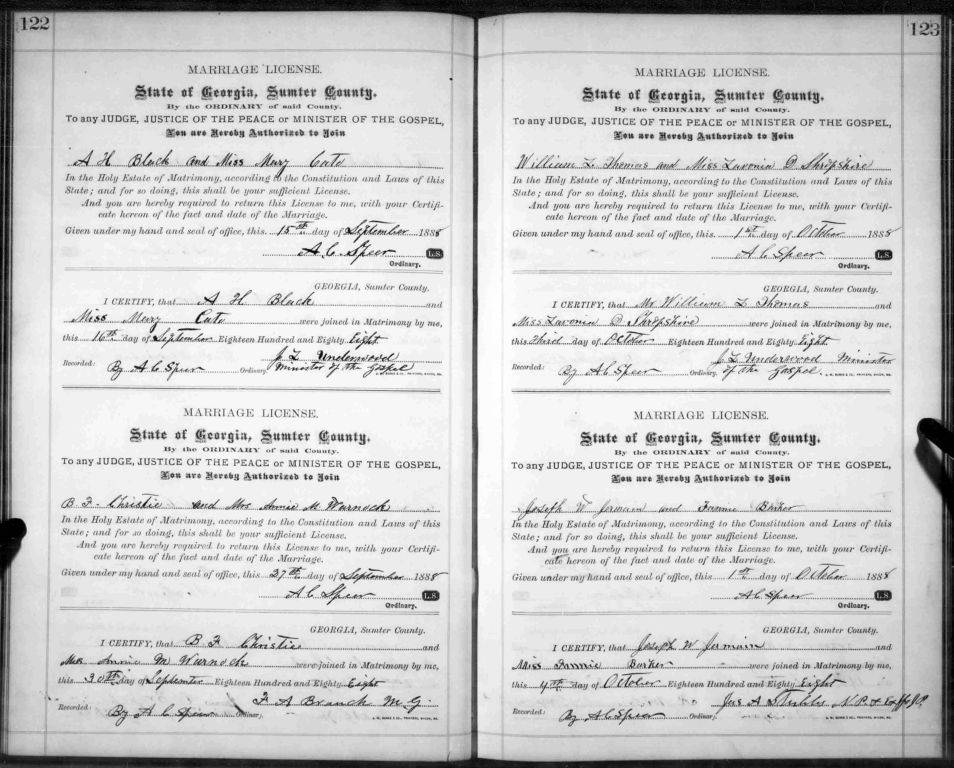 122
MARRIAGE LICENSE.
State of Georgia, Sumter County.
By the ORDINARY of said County.
To any JUDGE, JUSTICE OF THE PEACE or MINISTER OF THE GOSPEL,
You are Hereby Authorized to Join
A H Black and Miss Mary Cato
In the Holy Estate of Matrimony, according to the Constitution and Laws of this
State; and for so doing, this shall be your sufficient License.
And you are hereby required to return this License to me, with your Certifi-
cate hereon of the fact and date of the Marriage.
Given under my hand and seal of office, this 15th day of September 1888
A C Speer L.S.
Ordinary.
GEORGIA, Sumter County.
I CERTIFY, that A H Black and
Miss Mary Cato were joined in Matrimony by me,
this 16th day of September Eighteen Hundred and Eighty Eight
J L Underwood
Recorded: By A C Speer Ordinary. Minister of the Gospel
MARRIAGE LICENSE.
State of Georgia, Sumter County.
By the ORDINARY of said County.
To any JUDGE, JUSTICE OF THE PEACE or MINISTER OF THE GOSPEL,
You are Hereby Authorized to Join
B. F. Christie and Mrs Annie M Warnock
In the Holy Estate of Matrimony, according to the Constitution and Laws of this
State; and for so doing, this shall be your sufficient License.
And you are hereby required to return this License to me, with your Certifi-
cate hereon of the fact and date of the Marriage.
Given under my hand and seal of office, this 27th day of September 1888
A C Speer L.S.
Ordinary.
GEORGIA, Sumter County.
I CERTIFY, that B F Christie and
Mrs Annie M Warnock were joined in Matrimony by me,
this 30th day of September Eighteen Hundred and Eighty Eight
F A Branch M G
Recorded: By A C Speer Ordinary.
123
MARRIAGE LICENSE.
State of Georgia, Sumter County.
By the ORDINARY of said County.
To any JUDGE, JUSTICE OF THE PEACE or MINISTER OF THE GOSPEL,
You are Hereby Authorized to Join
William L Thomas and Miss Lavonia D Shropshire
In the Holy Estate of Matrimony, according to the Constitution and Laws of this
State; and for so doing, this shall be your sufficient License.
And you are hereby required to return this License to me, with your Certifi-
cate hereon of the fact and date of the Marriage.
Given under my hand and seal of office, this 1st day of October 1888
A C Speer L.S.
Ordinary.
GEORGIA, Sumter County.
I CERTIFY, that Mr William L Thomas and
Miss Lavonia D Shropshire were joined in Matrimony by me,
this Third day of October Eighteen Hundred and Eighty Eight
J L Underwood Minister
Recorded: By A C Speer Ordinary. of the Gospel
MARRIAGE LICENSE.
State of Georgia, Sumter County.
By the ORDINARY of said County.
To any JUDGE, JUSTICE OF THE PEACE or MINISTER OF THE GOSPEL,
You are Hereby Authorized to Join
Joseph W Jermain and Fannie Barker
In the Holy Estate of Matrimony, according to the Constitution and Laws of this
State; and for so doing, this shall be your sufficient License.
And you are hereby required to return this License to me, with your Certifi-
cate hereon of the fact and date of the Marriage.
Given under my hand and seal of office, this 1st day of October 1888
A C Speer L.S.
Ordinary.
GEORGIA, Sumter County.
I CERTIFY, that Joseph W Jermain and
Miss Fannie Barker were joined in Matrimony by me,
this 4th day of October Eighteen Hundred and Eighty Eight
Jas A N.P. & Ex offo J.P.
Recorded: By A C Speer Ordinary.